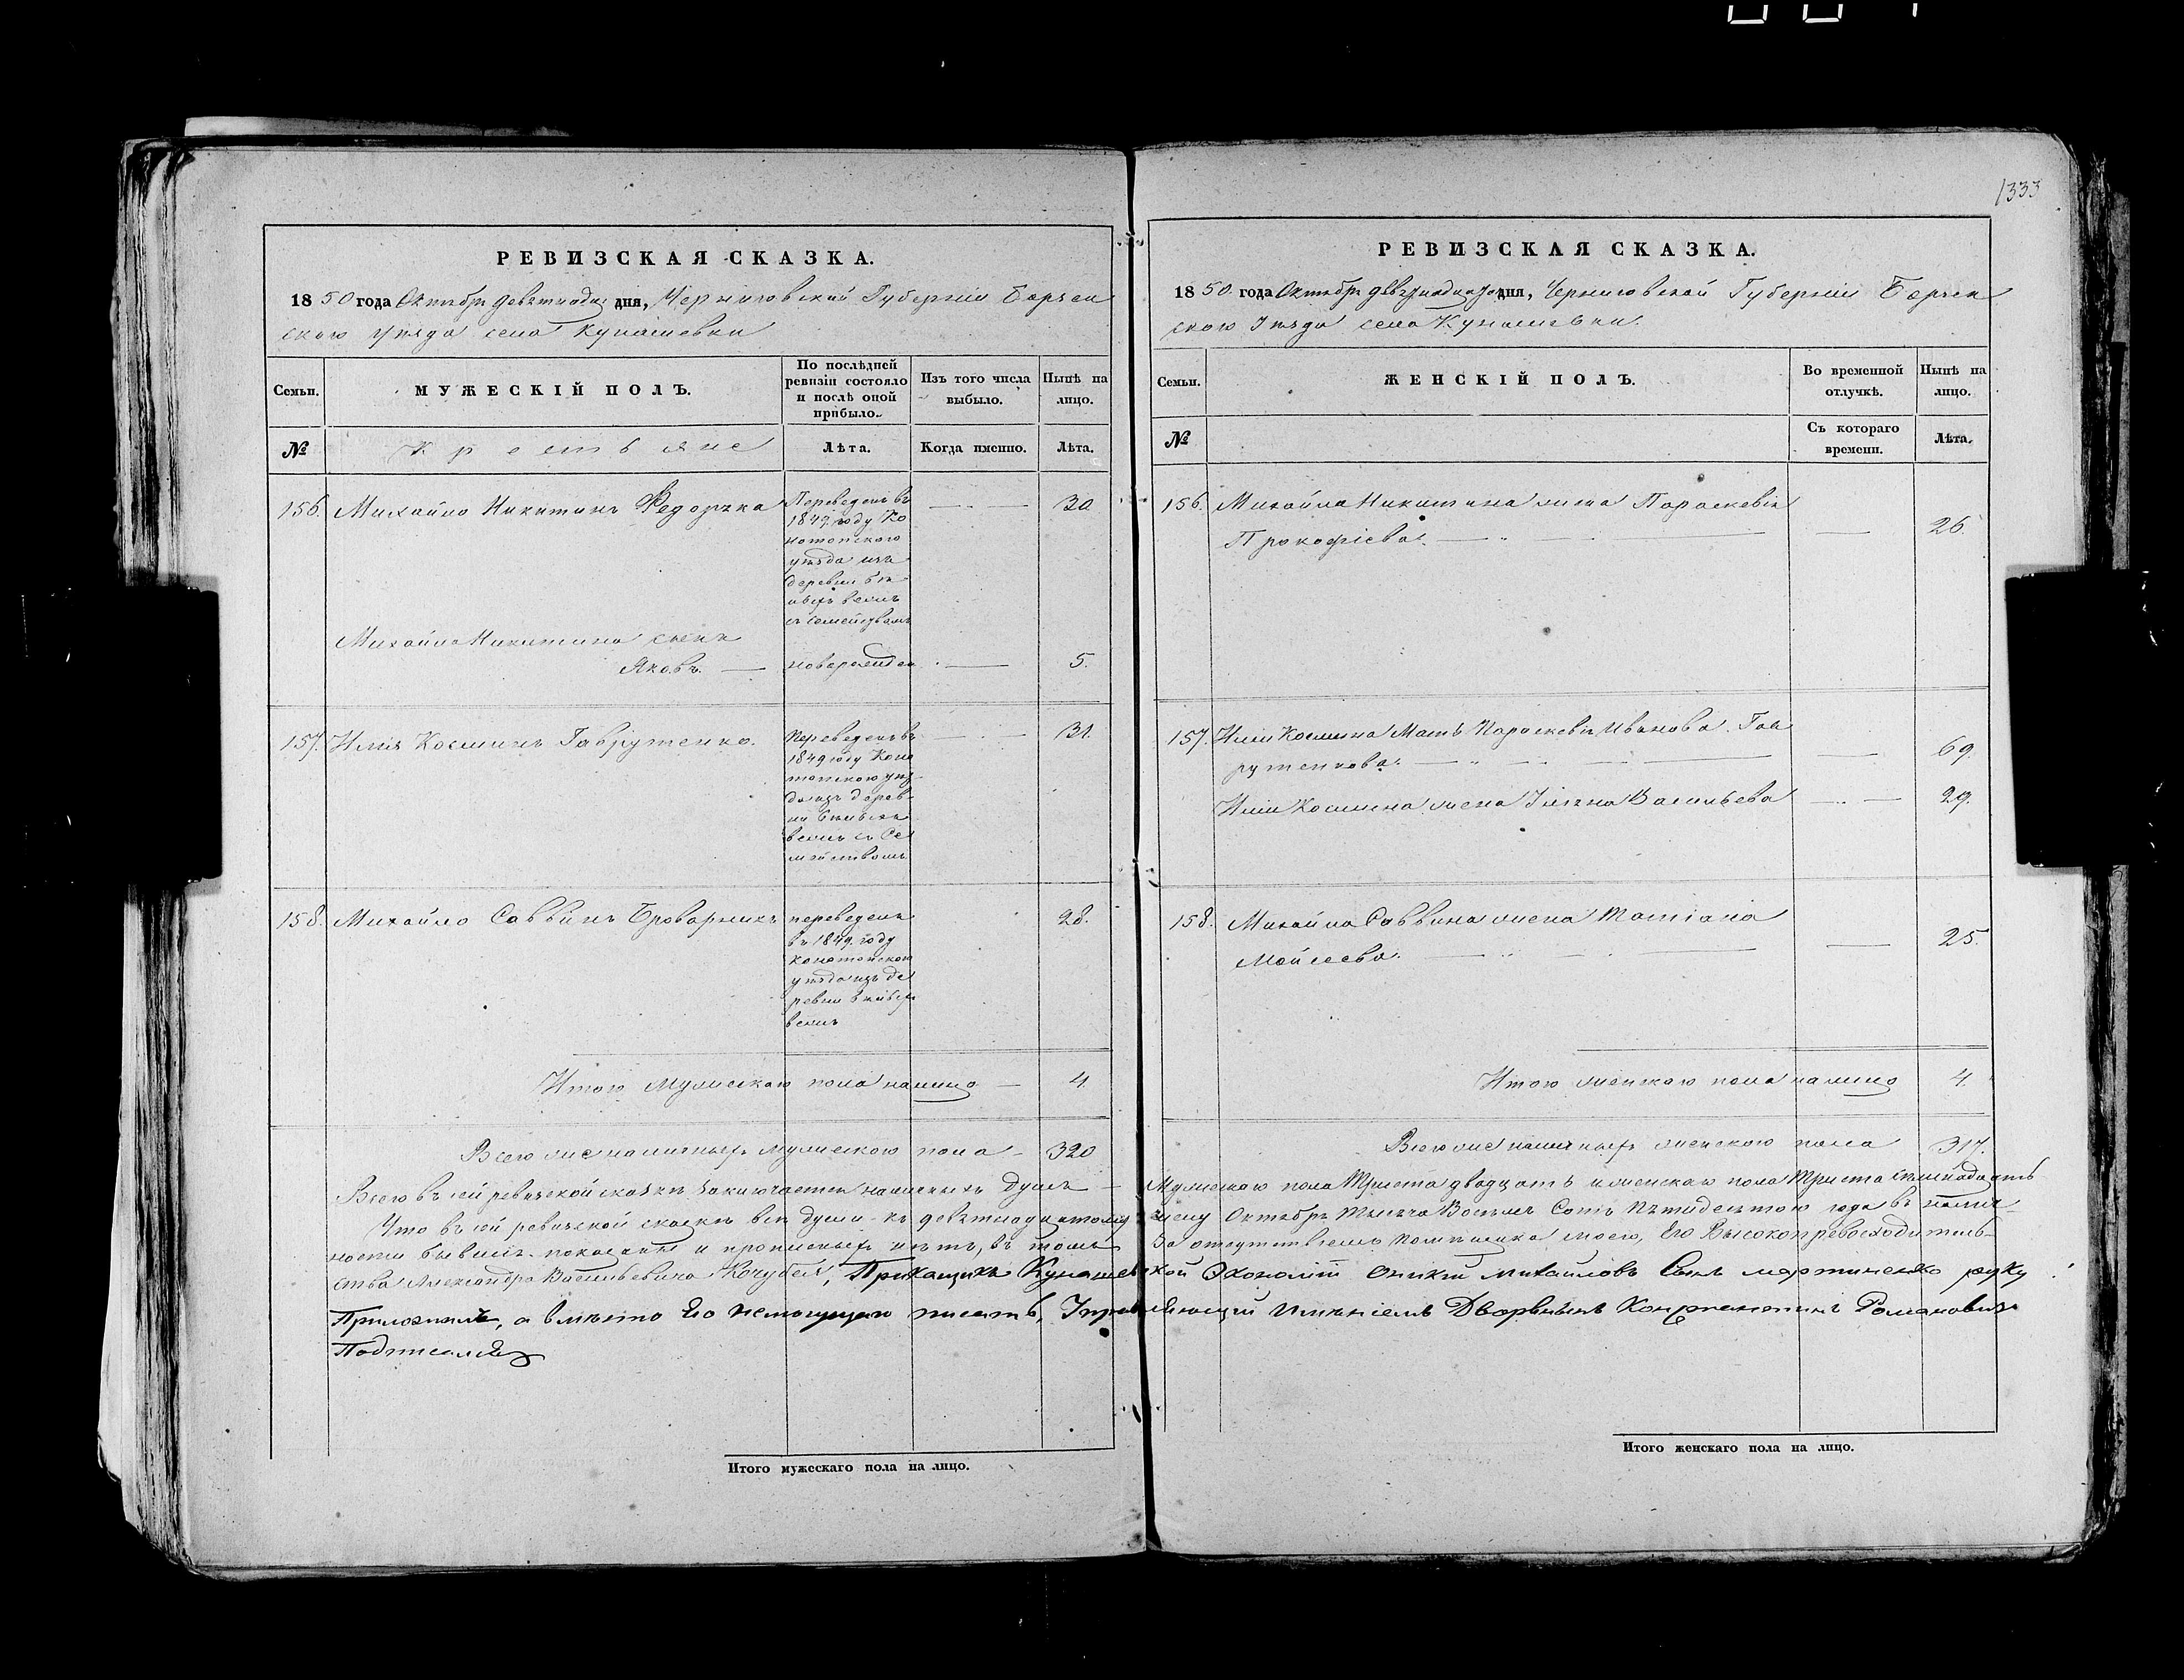 1333
РЕВИЗСКАЯ СКАЗКА.
1850 года Октября девятнадца дня, Черниговской Губерніи Борзен
скаго уѣзда села Кунашевки
Семьи.
МУЖЕСКІЙ ПОЛЪ.
По послѣдней
ревизіи состояло
и послѣ оной
прибыло.
Изъ того числа
выбыло.
Нынѣ на
лицо.
№
Крестьяне
Лѣта.
Когда именно.
Лѣта.
156. Михайло Никитинъ Федорка
Переведенъ въ
1849. году Ко
нотопского
уѣзда изъ
деревни
вежъ
съ семействомъ
30
Михайла Никитина сынъ
Яковъ. — новорожден — 5.
157. Илія Косминъ Гаврутенко.
переведенъ въ
1849 году Коно
топского уѣз
да изъ дерев
ни
вежъ съ Се
мействомъ
31.
158. Михайло Саввинъ Броварникъ
переведенъ
въ 1849. году
конотопского
уѣзда изъ де
ревни
вежъ
28.
Итого Мужескаго пола на лицо — 4.
Всего же наличныхъ мужескаго пола — 320
РЕВИЗСКАЯ СКАЗКА.
1850. года Октября девятнадцатого дня, Черниговской Губерніи Борзен
скаго Уѣзда села Кунашевки.
Семьи.
ЖЕНСКІЙ ПОЛЪ.
Во временной
отлучкѣ.
Нынѣ на
лицо.
№
Съ котораго
времени.
Лѣта.
156. Михайла Никитина жена Параскевія
Прокофіева. — 26.
157. Иліи Космина Мать Параскевія Иванова. Гав
рутенкова. — 69.
Иліи Космина жена Уліяна Васильева — 29.
158. Михайла Саввина жена Татіана
Мойсеева. — 25.
Итого женскаго пола на лицо 4.
Всего же наличныхъ женскаго пола 317.
Всего въ сей ревизской сказкѣ заключается наличныхъ душъ — Мужескаго пола Триста двадцать и женскаго пола Триста семнадцать
Что въ сей ревизской сказкѣ всѣ души къ девятнадцатому числу Октября Тысяча Восемь Сотъ Пятидесятого года въ налич
ности бывшіе показаны и прописныхъ нѣтъ, въ томъ За отсутствіемъ помѣщика моего, Его Высокопревосходитель
ства Александра Васильевича Кочубея, Прикащикъ Кунашевской Экономіи Оникій Михайловъ Сынъ Мартиненко руку
Приложилъ, а вмѣсто Его немогущаго писать, Управляющій Имѣніемъ Дворянинъ Константинъ Романовичъ
Подписался
Итого мужескаго пола на лицо.
Итого женскаго пола на лицо.